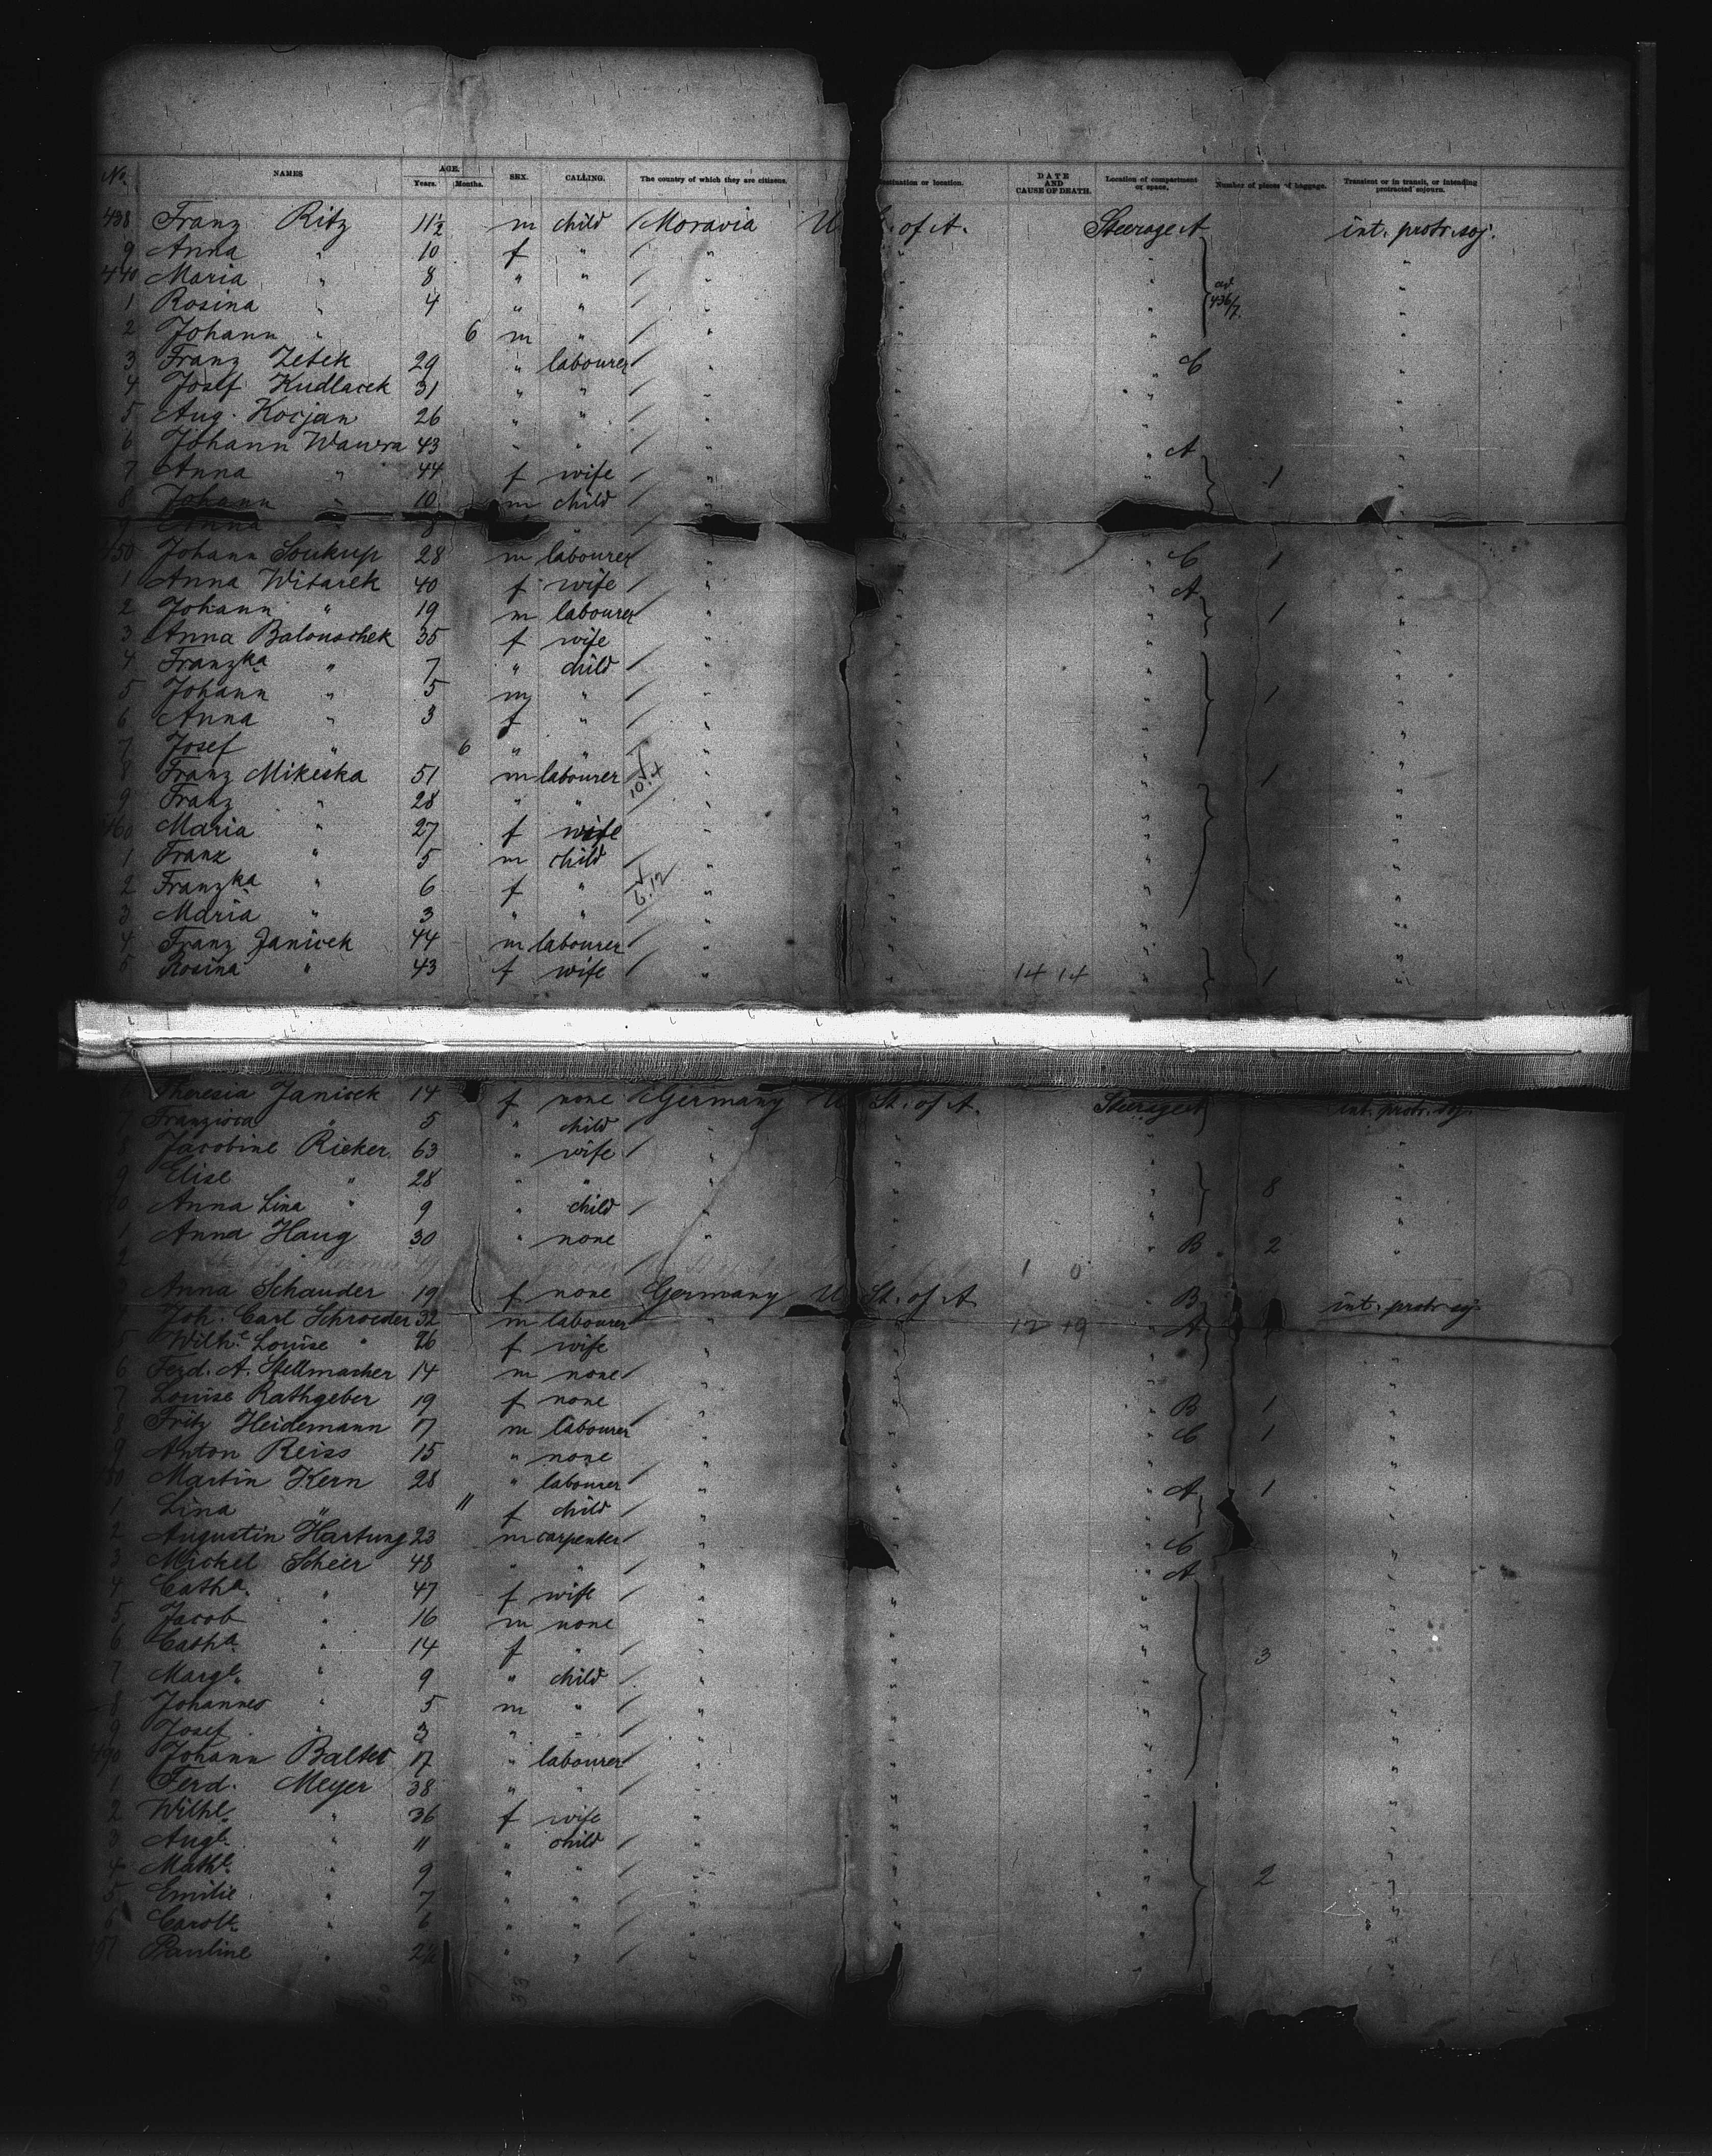 No. NAMES AGE. Years. Months. SEX. CALLING. The country of which they are citizens. destination or location. DATE AND CAUSE OF DEATH. Location of compartment or space. Number of pieces of baggage. Transient or in transit, or intending protracted sojourn.
438 Franz Ritz 11½ m child / Moravia U of A. Steerage A int. protr. soj.
9 Anna " 10 f " / " " " "
440 Maria " 8 " " / " " " "
1 Rosina " 4 " " / " " " 436/7. "
2 Johann " 6 m " / " " " "
3 Franz Zetek 29 " labourer / " " " C "
4 Josef Kudlacek 31 " " / " " " "
5 Aug. Kocjan 26 " " / " " " "
6 Johann Wawra 43 " " / " " " A "
7 Anna " 44 f wife / " " " 1 "
8 Johann " 10 m child "
9 Anna 8 " /
450 Johann Soukup 28 m labourer / " C 1
1 Anna Witarek 40 f wife / " " A "
2 Johann " 19 m labourer / " " " 1 "
3 Anna Balouschek 35 f wife " " " "
4 Franzka " 7 " child / " " " "
5 Johann " 5 m " / " " " 1 "
6 Anna " 3 f " / " " " "
7 Josef " 6 " " " " " "
8 Franz Mikeska 51 m labourer / " " " 1 "
9 Franz " 28 " " / " " " "
460 Maria " 27 f wife " " " "
1 Franz " 5 m child / " " " "
2 Franzka " 6 f " 6.12 " " " "
3 Maria " 3 " " / " " " "
4 Franz Janicek 44 m labourer / " " " "
5 Rosina " 43 f wife / " " 14 14 " 1 "
6 Theresia Janicek 14 f none Germany U St. of A. Steerage int. protr. soj.
7 " 5 " child / " " " "
8 Jacobine Rieker 63 " wife / " " " "
9 Elise " 28 " " " " " 8 "
70 Anna Lina " 9 " child / " " " "
1 Anna Haug 30 " none " " " B 2 "
2
3 Anna Schauder 19 f none Germany U St. of A. B int. protr. soj.
4 Joh. Carl Schroeder 32 m labourer " " 12 19 " A
5 Wilhe Louise " 26 f wife / " " " "
6 Ferd. A. Stellmacher 14 m none / " " " "
7 Louise Rathgeber 19 f none / " " " B 1 "
8 Fritz Heidemann 17 m labourer " " " C 1 "
9 Anton Reiss 15 " none / " " " "
80 Martin Kern 28 " labourer / " " " A 1 "
1 Lina " 11 f child / " " " "
2 Augustin Hartung 23 m carpenter / " " " C "
3 Mickel Scheer 48 " " / " " " A "
4 Catha. " 47 f wife / " " " "
5 Jacob 16 m none " " " "
6 Catha. " 14 f " / " " " "
7 Margt. " 9 " child / " " " 3 "
8 Johannes " 5 m " / " " " "
9 Josef " 3 " " / " " " "
490 Johann Balter 17 " labourer / " " " "
1 Ferd. Meyer 38 " " / " " " "
2 Wilhe. " 36 f wife " " " "
3 Auge. " 11 " child / " " " "
4 Mathe. " 9 " " / " " " 2 "
5 Emilie " 7 " " / " " " "
6 Carole " 6 " " / " " " "
497 Pauline " 2½ " " / " " " "